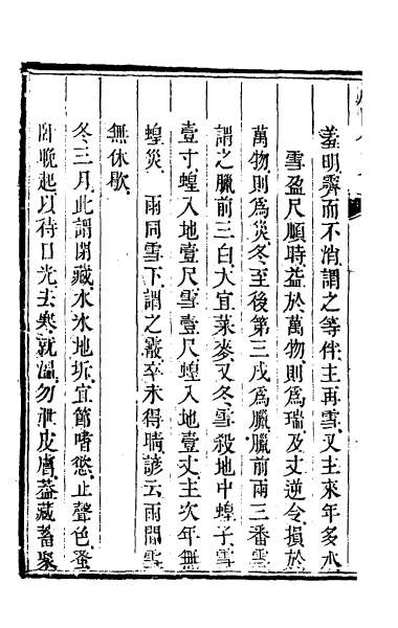 羞明霽而不消謂之等伴主再雪又主來年多水
雪盈尺順時益於萬物則爲瑞及丈逆令損於
萬物則爲災冬至後第三戌爲臘臘前兩三番雪
謂之臘前三白大宜菜麥又冬雪殺地中蝗子雪
壹寸蝗入地壹尺雪壹尺蝗入地壹丈主次年無
蝗災　雨同雪下謂之霰卒未得晴諺云雨間雪
無休歇
冬三月此謂閉藏水氷地坼宜節嗜慾止聲色蚤
臥晚起以待日光去寒就溫勿泄皮膚葢藏畜聚